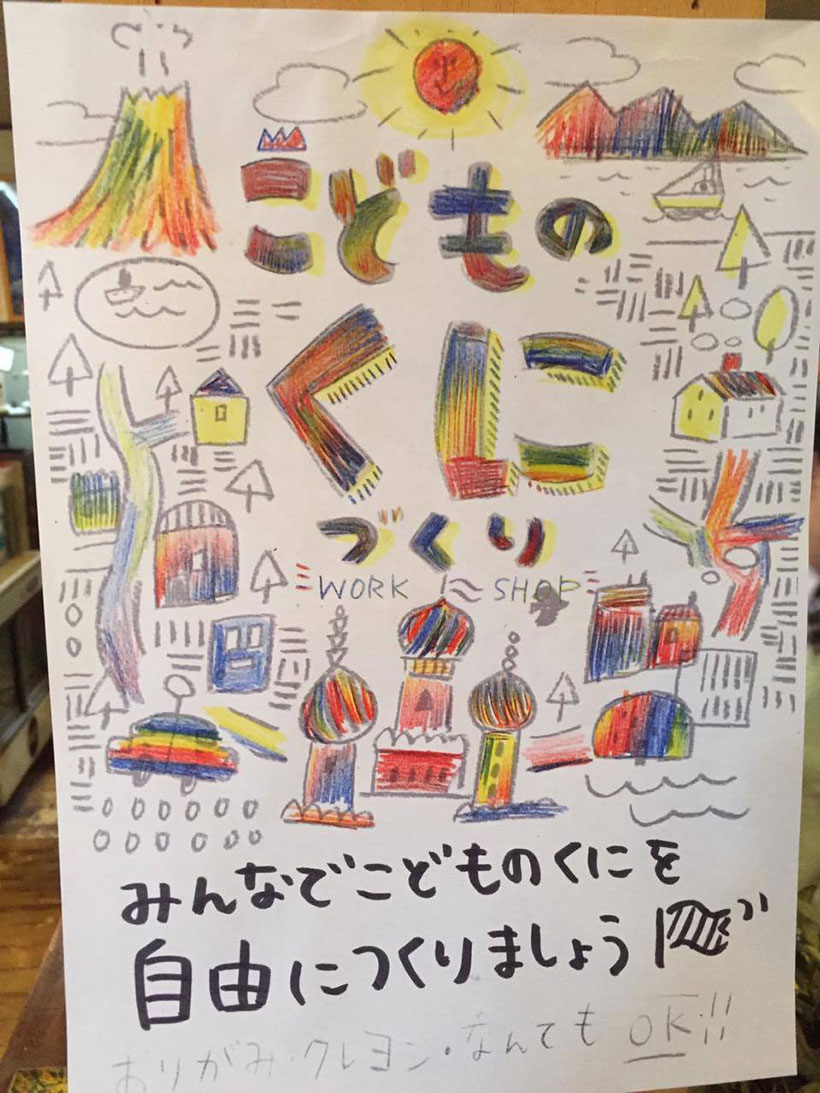 こどもの
くに
づくり
WORK SHOP
みんなでこどものくにを
自由につくりましょう
おりがみ・クレヨン・なんでも OK!!